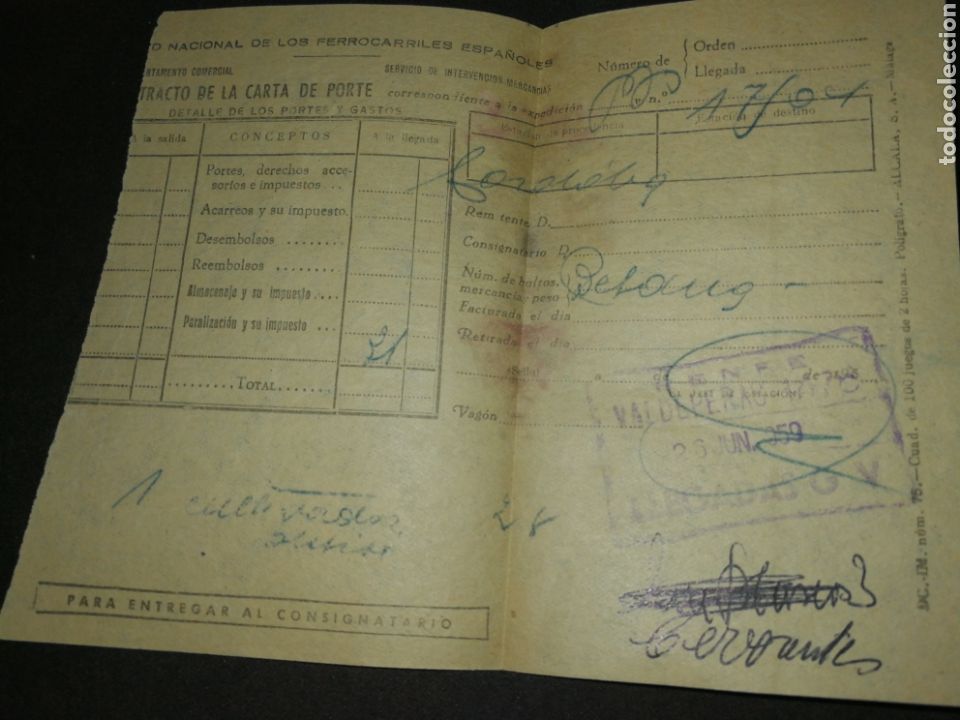 TO NACIONAL DE LOS FERROCARRILES ESPAÑOLES
RTAMENTO COMERCIAL
SERVICIO DE INTERVENCION-MERCANCIAS
TRACTO DE LA CARTA DE PORTE
correspondiente a la expedición
DETALLE DE LOS PORTES Y GASTOS
Número de
Orden
Llegada
P.V. n.º 17/01
A la salida
CONCEPTOS
A la llegada
Portes, derechos acce-
sorios e impuestos . . .
Acarreos y su impuesto.
Desembolsos .......
Reembolsos ........
Almacenaje y su impuesto...
Paralización y su impuesto ...
21
.........TOTAL.........
Estación de procedencia
Estación de destino
Cordoba
Remitente D.
Consignatario D.
Núm. de bultos.
mercancía, peso
Facturada el día
Retirada el día
(Sello)
a
de
de 195
EL JEFE DE ESTACIÓN
Vagón
RENFE
VALDEPEÑAS
26 JUN. 959
LLEGADAS G V
1
28
Cervantes
PARA ENTREGAR AL CONSIGNATARIO
DC.-IM. núm. 75.—Cuad. de 100 juegos de 2 horas. Polígrafo.—ALCALA, S. A.—Málaga
todocoleccion